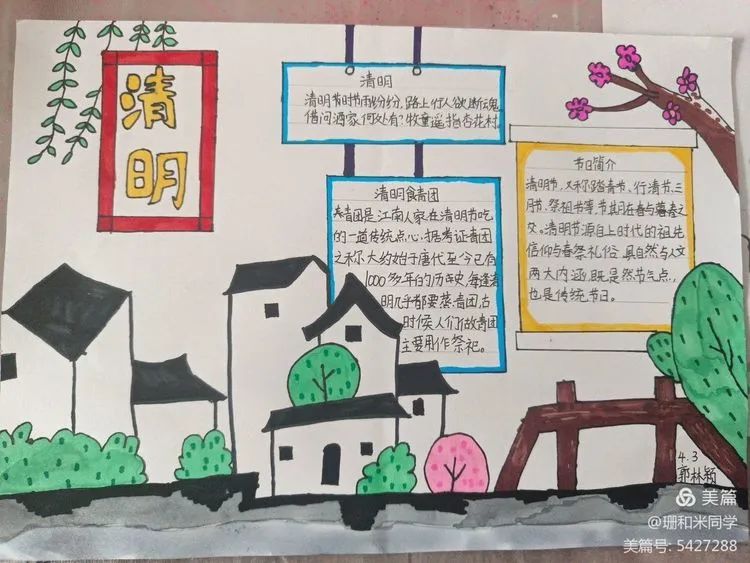 清明
清明
清明节时节雨纷纷,路上行人欲断魂。
借问酒家何处有?牧童遥指杏花村。
清明食青团
青团是江南人家在清明节吃
的一道传统点心,据考证青团
之称大约始于唐代至今已有
1000多年的历史,每逢清
明几乎都要蒸青团,古
时候人们做青团
主要用作祭祀。
节日简介
清明节,又称踏青节、行清节、三
月节、祭祖节等,节期在春与暮春之
交。清明节源自上时代的祖先
信仰与春祭礼俗,具自然与人文
两大内涵,既是然节气点,
也是传统节日。
4.3
郭林颖
美篇
@珊和米同学
美篇号: 5427288